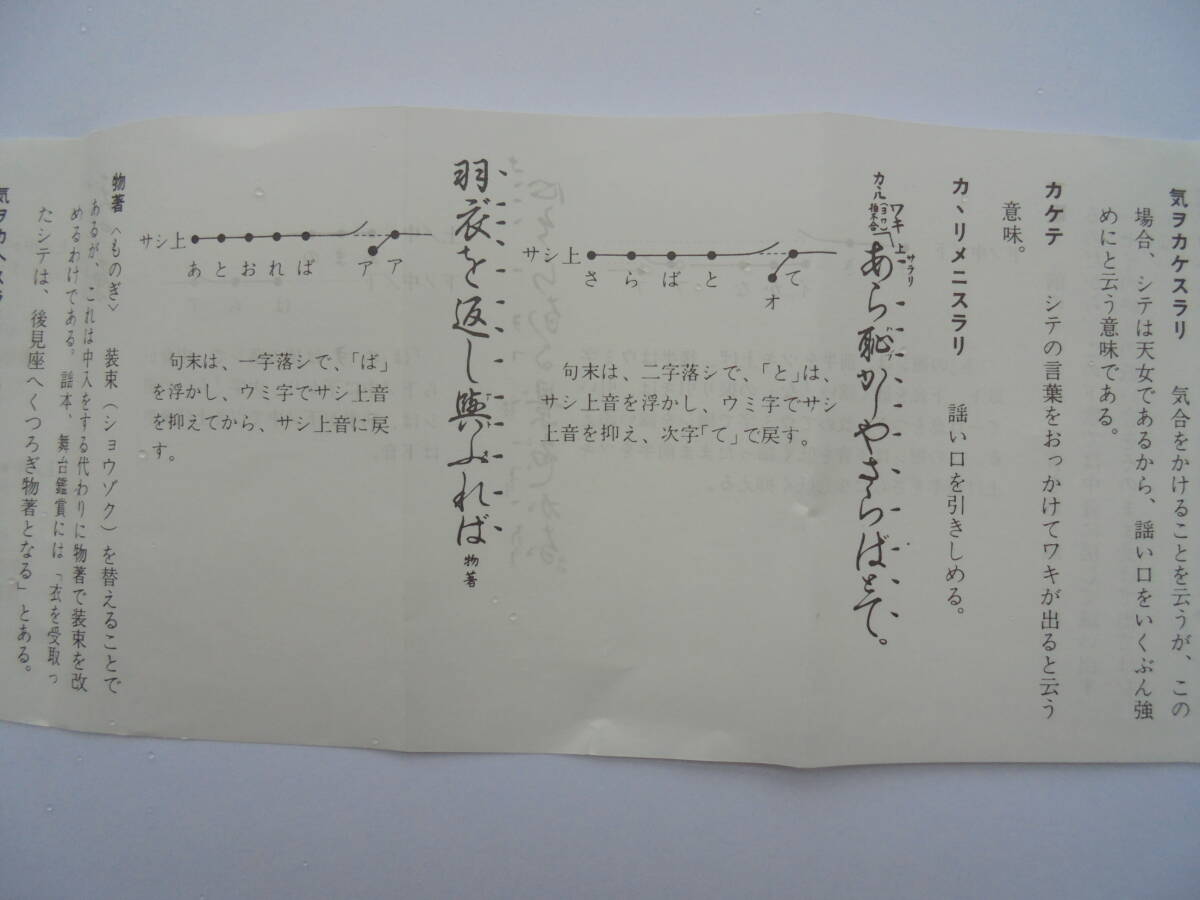 気ヲカケスラリ　気合をかけることを云うが、この
場合、シテは天女であるから、謡い口をいくぶん強
めにと云う意味である。
カケテ　シテの言葉をおっかけてワキが出ると云う
意味。
カヽリメニスラリ　謡い口を引きしめる。
サラリ
ワキ 上
カヽル
あら恥かしやさらばとて。
サシ上
さ ら ば と て
オ
句末は、二字落シで、「と」は、
サシ上音を浮かし、ウミ字でサシ
上音を抑え、次字「て」で戻す。
羽衣を返し與ふれば 物著
サシ上
あ と お れ ば ア ア
句末は、一字落シで、「ば」
を浮かし、ウミ字でサシ上音
を抑えてから、サシ上音に戻
す。
物著〈ものぎ〉　装束（ショウゾク）を替えることで
あるが、これは中入をする代わりに物著で装束を改
めるわけである。謡本、舞台鑑賞には「衣を受取っ
たシテは、後見座へくつろぎ物著となる」とある。
気ヲカヘスラ